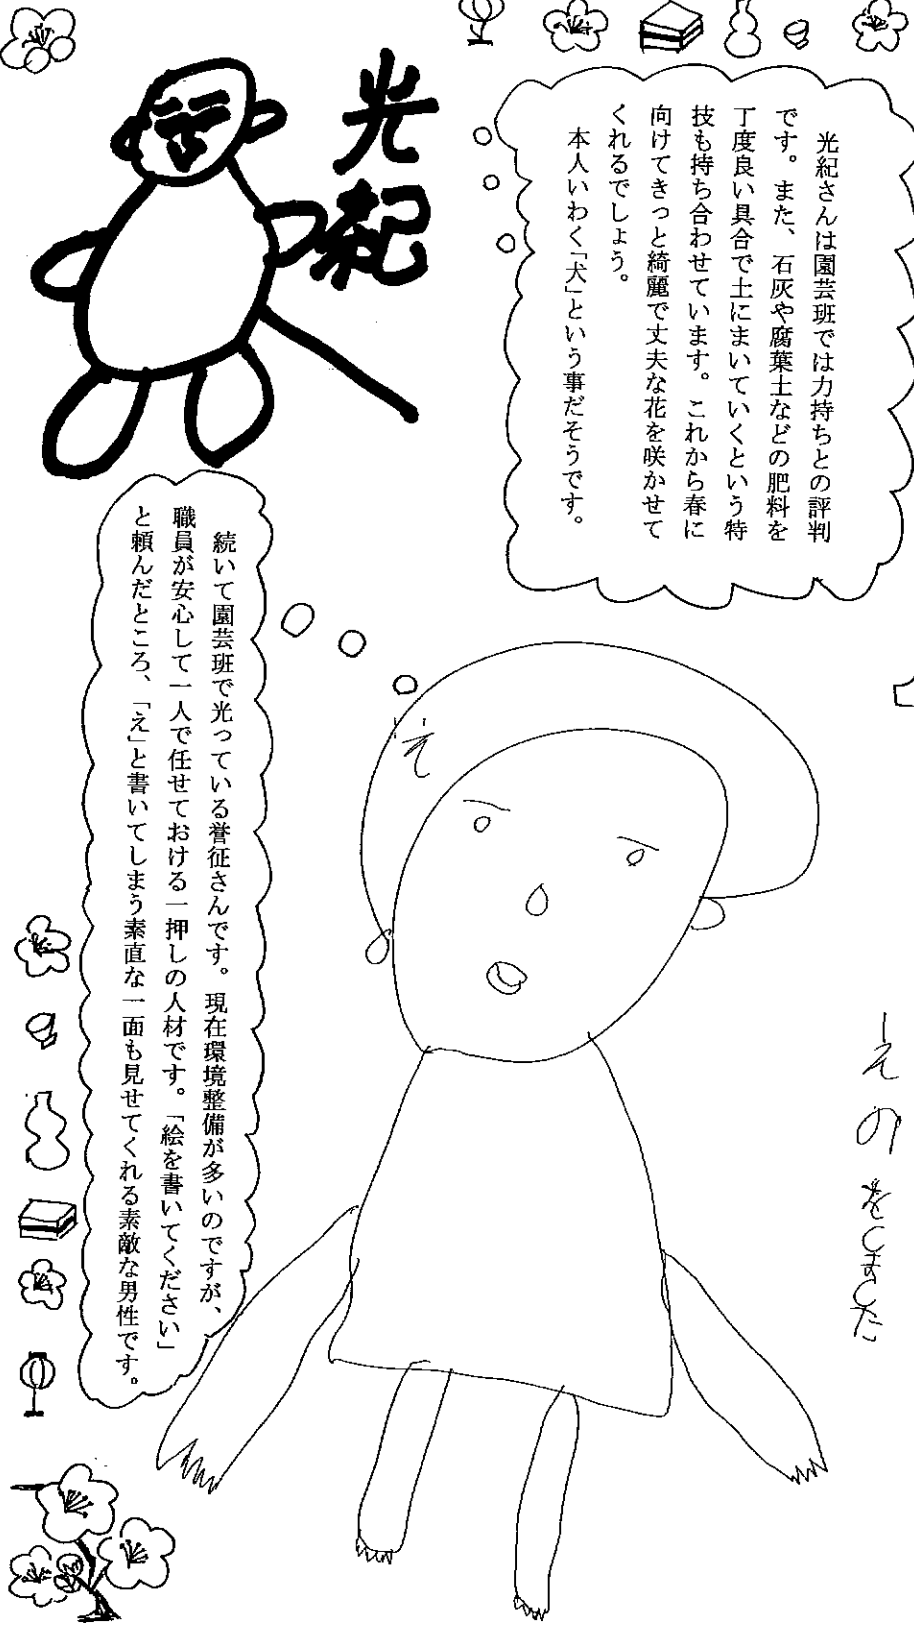 光紀さんは園芸班では力持ちとの評判
です。また、石灰や腐葉土などの肥料を
丁度良い具合で土にまいていくという特
技も持ち合わせています。これから春に
向けてきっと綺麗で丈夫な花を咲かせて
くれるでしょう。
本人いわく「犬」という事だそうです。
光紀
続いて園芸班で光っている誉征さんです。現在環境整備が多いのですが、
職員が安心して一人で任せておける一押しの人材です。「絵を書いてください」
と頼んだところ、「え」と書いてしまう素直な一面も見せてくれる素敵な男性です。
え
えのをしました